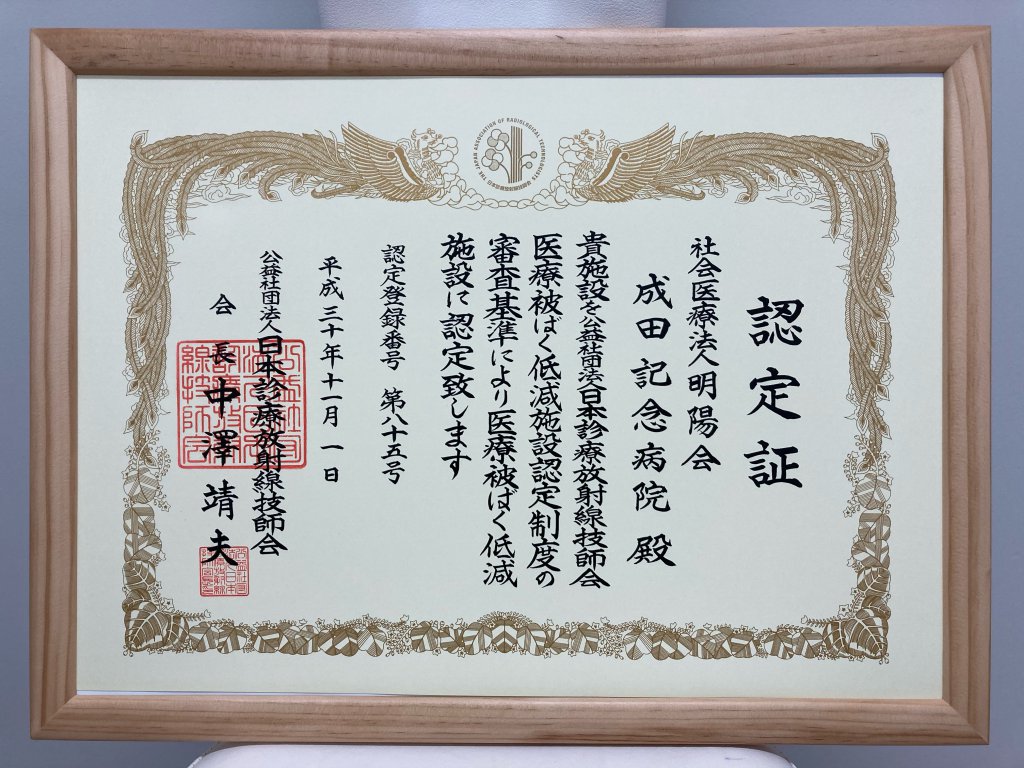 認定証
社会医療法人明陽会
成田記念病院 殿
貴施設を公益社団法人日本診療放射線技師会
医療被ばく低減施設認定制度の
審査基準により医療被ばく低減
施設に認定致します
認定登録番号 第八十五号
平成三十年十一月一日
公益社団法人日本診療放射線技師会
会長 中澤靖夫
THE JAPAN ASSOCIATION OF RADIOLOGICAL TECHNOLOGISTS